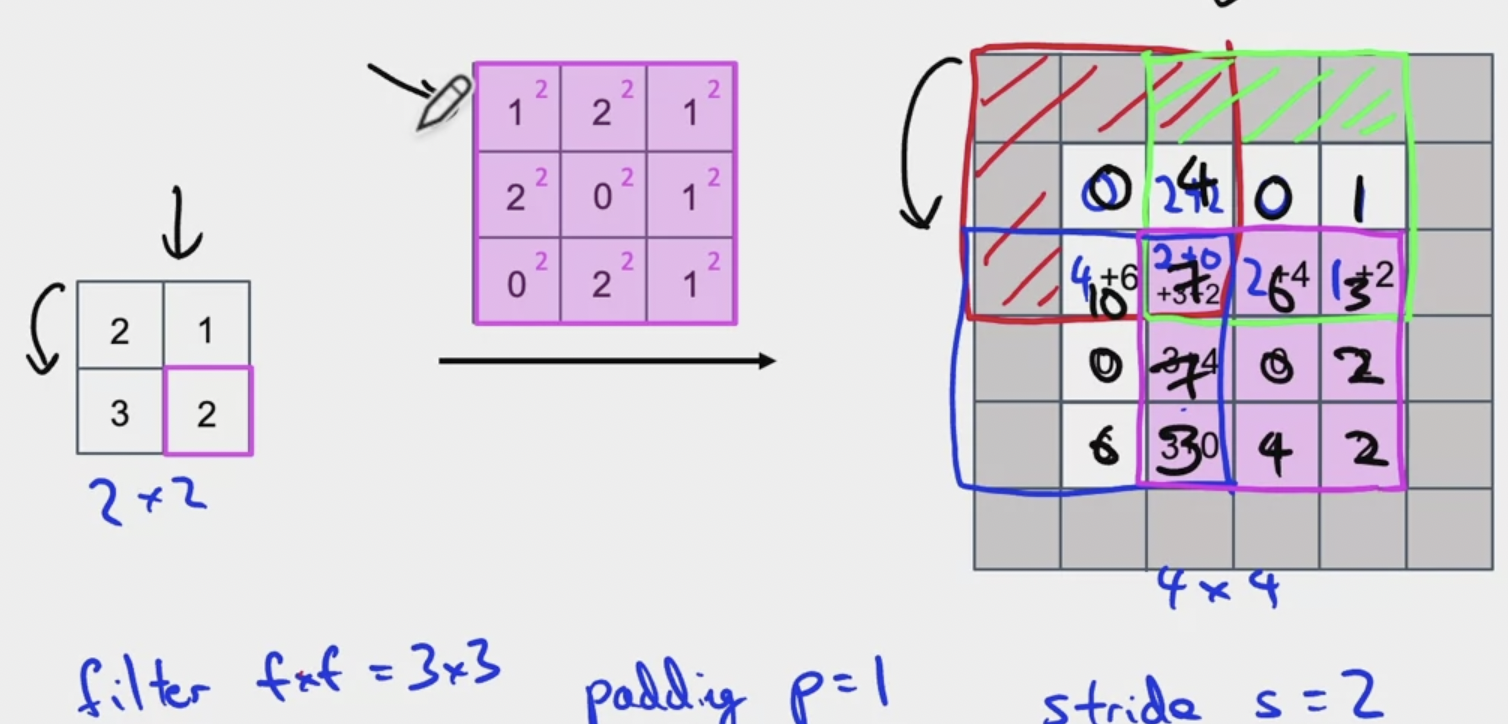 1 2 2 2 1 2
2 2 0 2 1 2
0 2 2 2 1 2
2 1
3 2
2 × 2
0 4 0 1
4 +6 10 2+0 +3+2 7 2 +4 6 1 +2 3
0 7 0 2
6 3 4 2
4 × 4
filter f×f = 3×3 padding p=1 stride s = 2